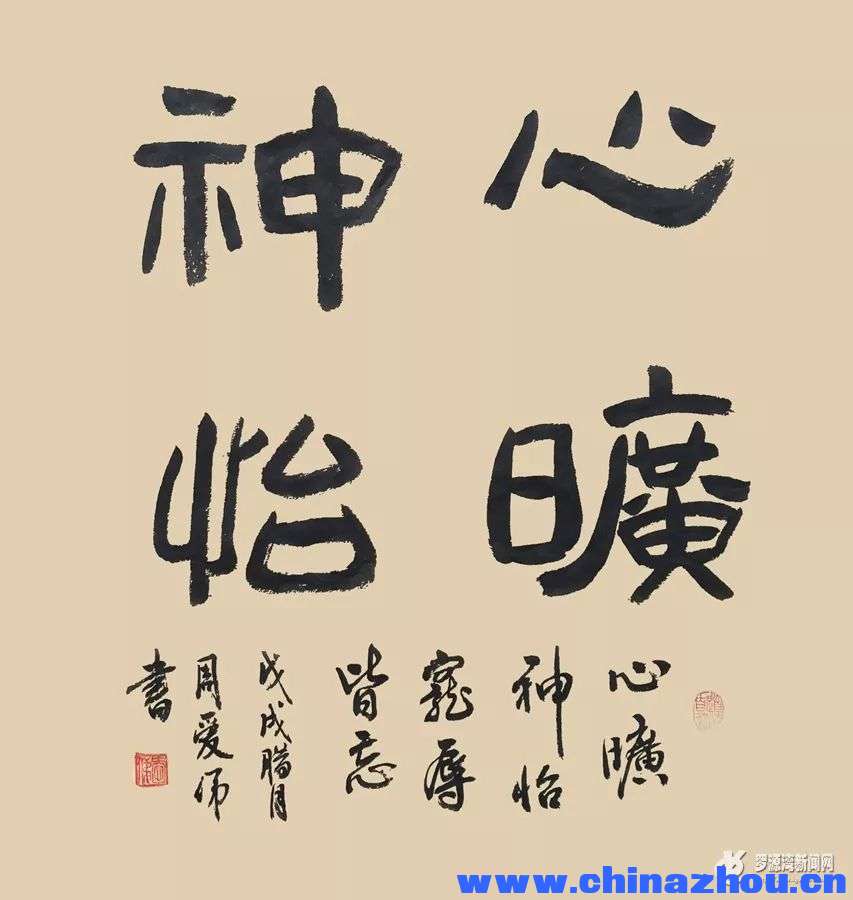 心曠
神怡
心曠
神怡
寵辱
皆忘
戊戌腊月
周爱
書
罗源湾新闻网
www.chinazhou.cn